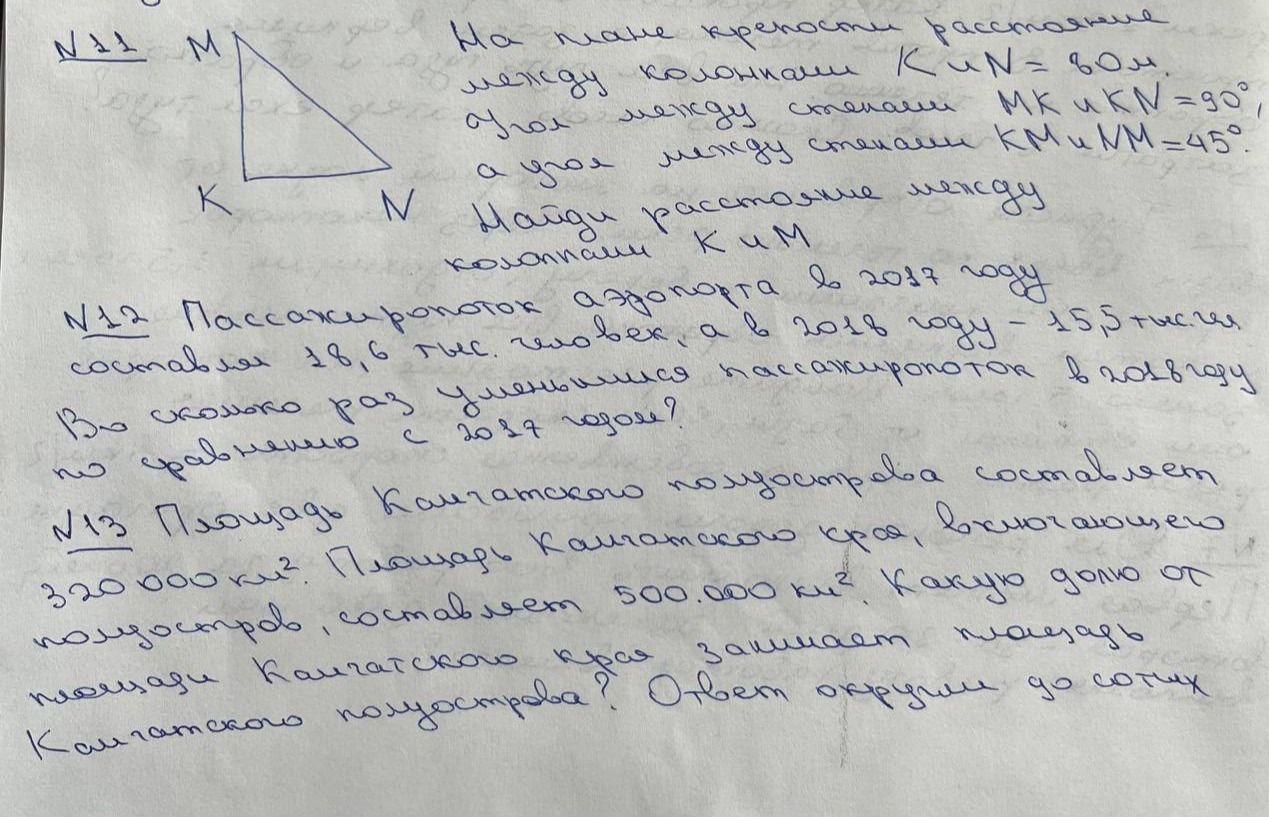 N11 M На плане крепости расстояние
между колонками K и N = 80 м.
Угол между стенами MK и KN = 90°,
а угол между стенами KM и NM = 45°.
K N Найди расстояние между
колонками K и M
N12 Пассажиропоток аэропорта в 2017 году
составлял 18,6 тыс. человек, а в 2018 году – 15,5 тыс.чел
Во сколько раз уменьшился пассажиропоток в 2018 году
по сравнению с 2017 годом?
N13 Площадь Камчатского полуострова составляет
320 000 км². Площадь Камчатского края, включающего
полуостров, составляет 500.000 км². Какую долю от
площади Камчатского края занимает площадь
Камчатского полуострова? Ответ округли до сотых